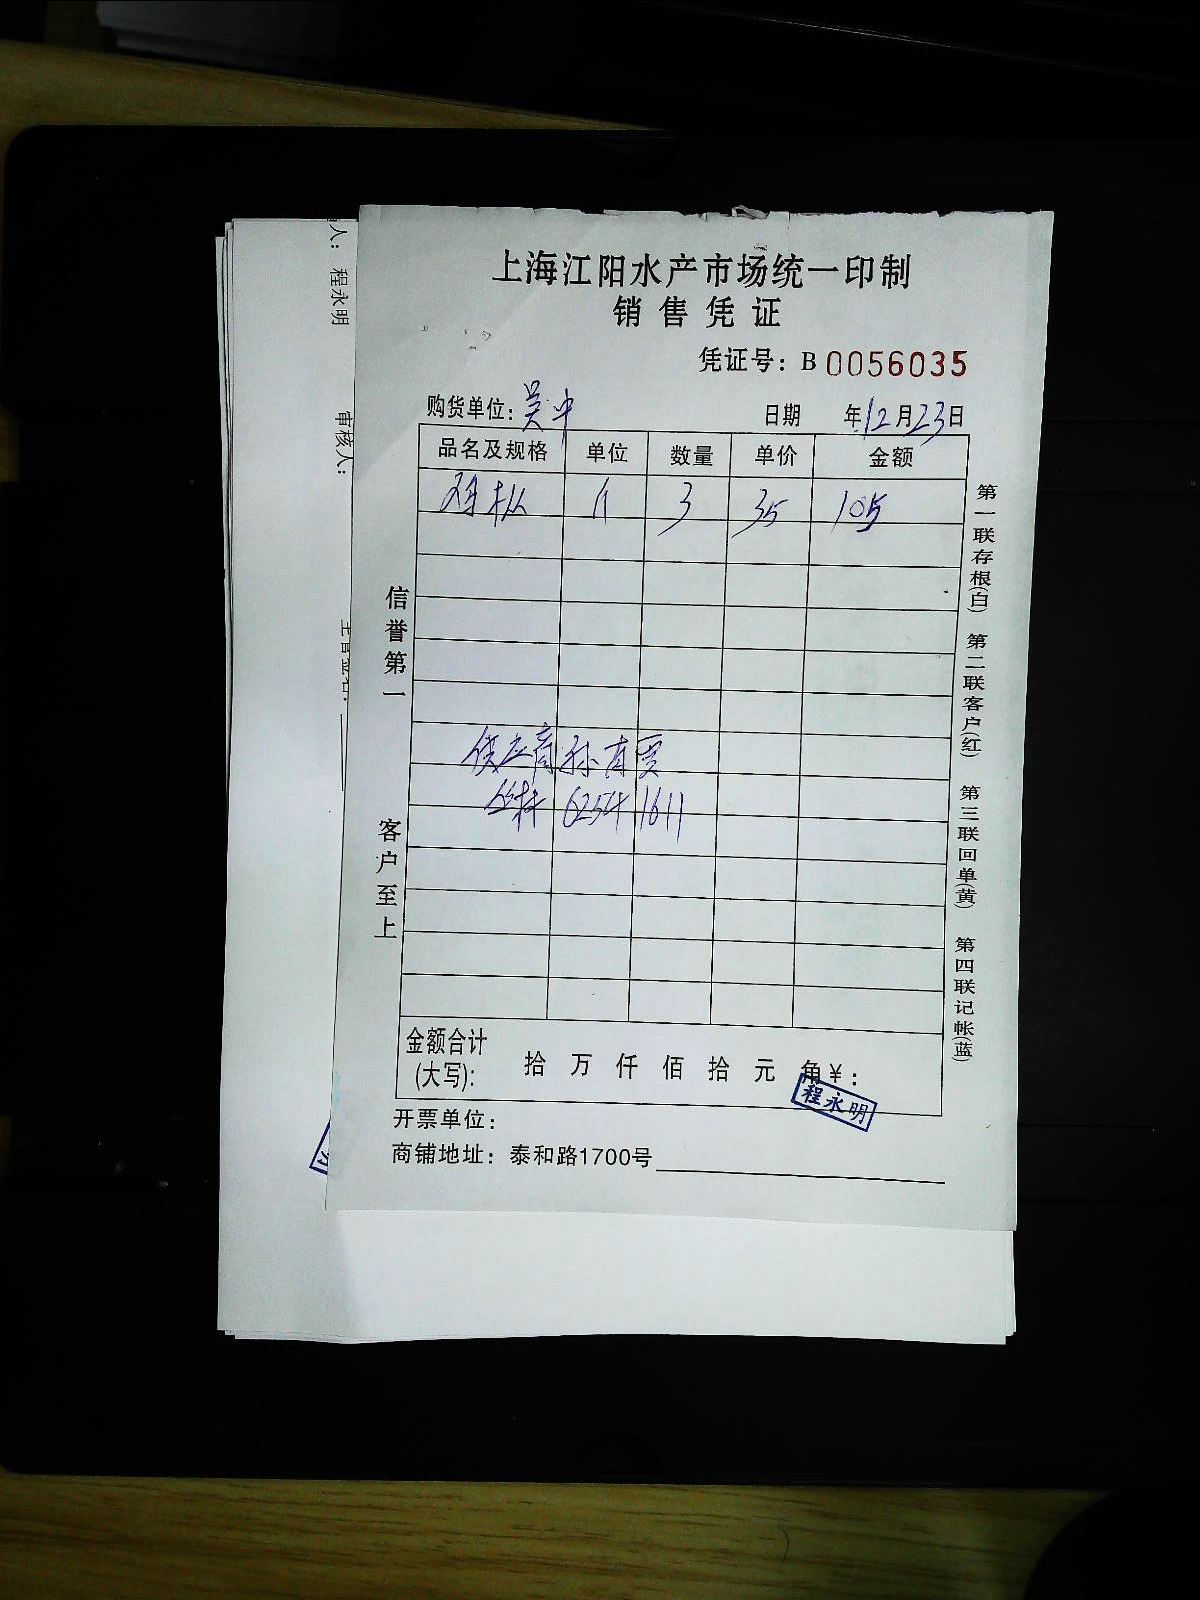 上海江阳水产市场统一印制
销售凭证
凭证号：B 0056035
购货单位：吴中 日期 年12月23日
品名及规格 单位 数量 单价 金额
3 35 105
信誉第一
客户至上
供应商孙有贾
62541611
金额合计(大写)： 拾 万 仟 佰 拾 元 角 ¥：
程永明
开票单位：
商铺地址：泰和路1700号
第一联存根(白) 第二联客户(红) 第三联回单(黄) 第四联记帐(蓝)
人：程永明
审核人：